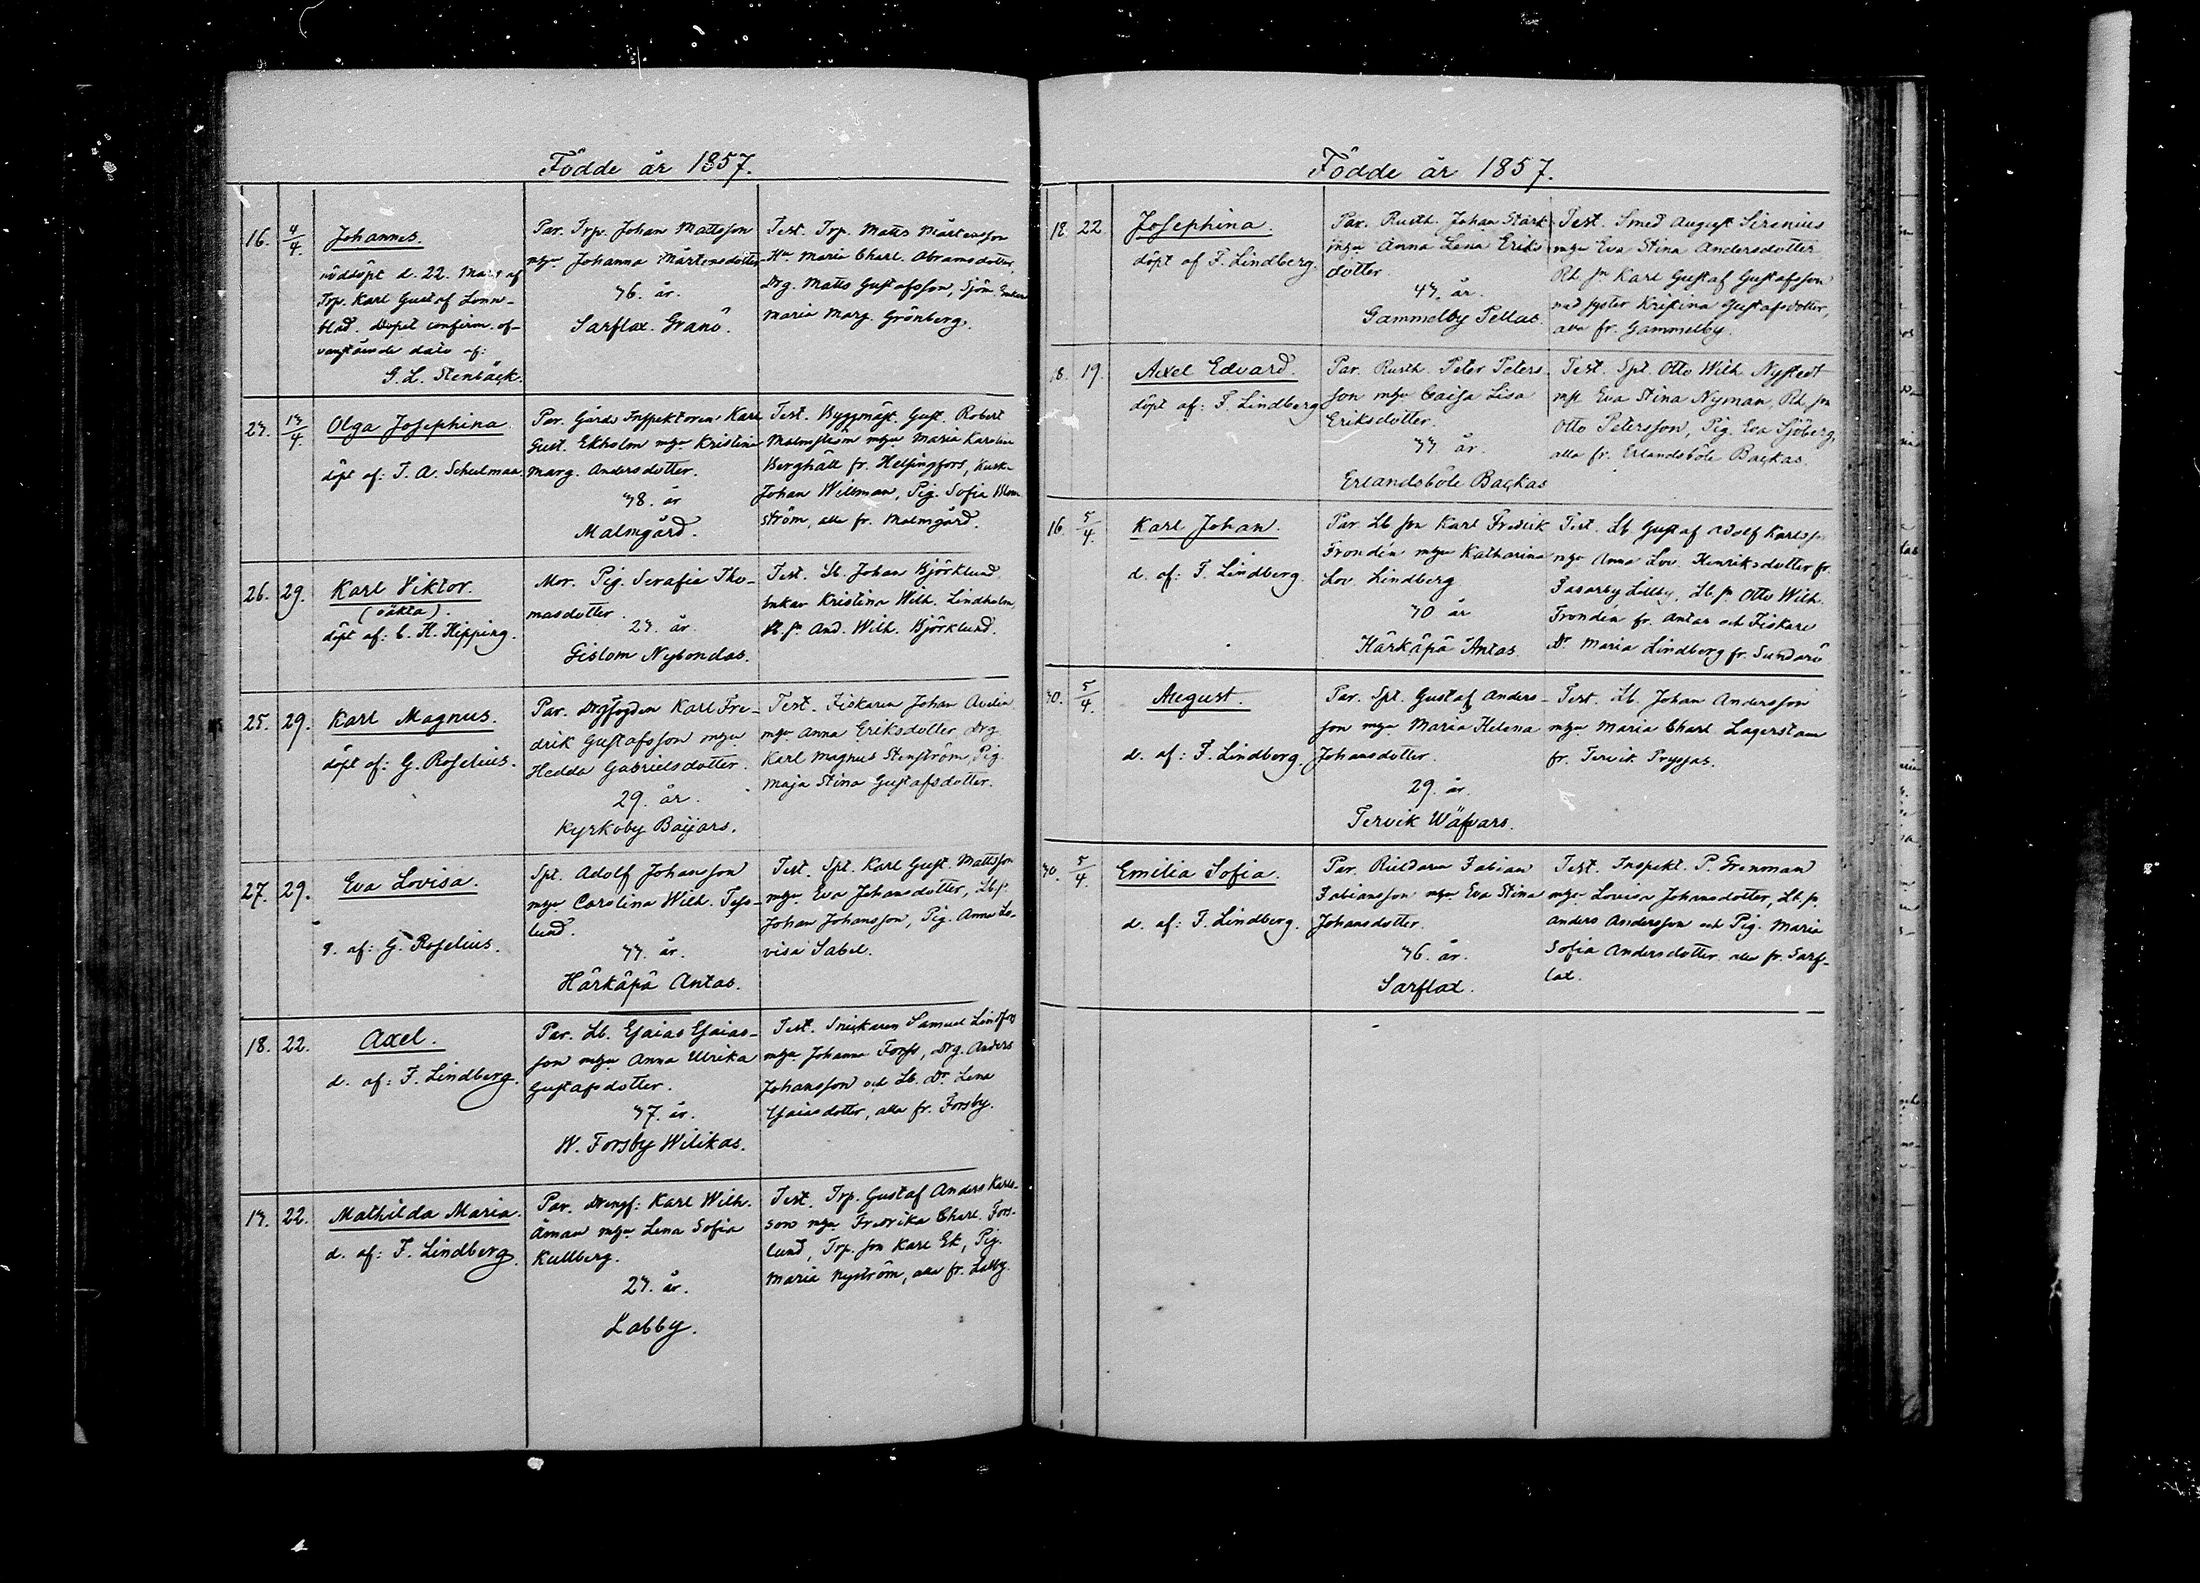 Födde år 1857.
16. 4/4. Johannes.
nöddöpt d. 22. Mars af
Trp. Karl Gustaf Lönn-
blad. Dopet confirm. of-
vanstående dato af:
G. L. Stenbäck.
Par. Trp. Johan Mattsson
mhu Johanna Mårtensdotter
36. år.
Sarflax. Granö.
Test. Trp. Matts Mårtensson
Hu Maria Charl. Abramsdotter,
Drg. Matts Gustafsson, Sjöm. Enkan
Maria Marg. Grönberg.
23. 13/4 Olga Josephina
döpt af: J. A. Schulman
Par. Gårds Inspektoren Karl
Gust. Ekholm mhu Kristina
Marg. Andersdotter.
38. år
Malmgård.
Test. Byggmäst. Gust. Robert
Malmström mhu Maria Karolin
Berghäll fr. Helsingfors, Kusk.
Johan Willman, Pig. Sofia Blom
ström, alla fr. Malmgård.
26. 29. Karl Viktor.
(oäkta).
döpt af: C. H. Hipping.
Mor. Pig. Serafia Tho-
masdotter.
23. år.
Gislom Nybondas.
Test. Lb. Johan Björklund,
enkan Kristina Wilh. Lindholm,
And. Wilh. Björklund.
25. 29. Karl Magnus.
döpt af: G. Roselius.
Par. Drgfogden Karl Fre-
drik Gustafsson mhu
Hedda Gabrielsdotter.
29. år.
Kyrkoby Baijars.
Test. Fiskaren Johan
mhu Anna Eriksdotter, Drg.
Karl Magnus Stenström, Pig.
Maja Stina Gustafsdotter.
27. 29. Eva Lovisa.
d. af: G. Roselius.
Spt. Adolf Johansson
mhu Carolina Wilh.
lund.
33. år.
Härkäpä Antas.
Test. Spt. Karl Gust. Mattsson
mhu Eva Johansdotter, Lb.s.
Johan Johansson, Pig. Anna Lo-
visa Sabel.
18. 22. Axel.
d. af: F. Lindberg.
Par. Lb. Esaias Esaias-
son mhu Anna Ulrika
Gustafsdotter.
37. år.
W. Forsby Wilikas.
Test. Snickaren Samuel Lindfors
mhu Johanna Forss, Drg. Anders
Johansson och Lb. Dr Lena
Esaiasdotter, alla fr. Forsby.
13. 22. Mathilda Maria.
d. af: F. Lindberg.
Par. Drengf: Karl Wilh.
Åman mhu Lena Sofia
Kullberg.
23. år.
Labby.
Test. Trp. Gustaf Anders Karls-
son mhu Fredrika Charl. Fors-
lund, Trp. son Karl Ek, Pig.
Maria Nyström, alla fr. Labby.
Födde år 1857.
18. 22. Josephina.
döpt af F. Lindberg.
Par. Rusth. Johan Stark
mhu Anna Lena Eriks
dotter.
43. år.
Gammelby Pellas.
Test. Smed August Sirenius
mhu Eva Stina Andersdotter
Rd. sn Karl Gustaf Gustafsson
med syster Kristina Gustafsdotter,
alla fr. Gammelby.
18. 19. Axel Edvard.
döpt af: F. Lindberg
Par. Rusth. Peter Peters
son mhu Caisa Lisa
Eriksdotter.
33 år.
Erlandsböle Backas
Test. Spt. Otto Wilh. Nystedt
mhu Eva Stina Nyman, Rd. sn
Otto Petersson, Pig. Eva Sjöberg,
alla fr. Erlandsböle Backas.
16. 5/4. Karl Johan.
d. af: F. Lindberg.
Par. Lb. son Karl Fredrik
Frondén mhu Katharina
Lov. Lindberg
30 år
Härkäpä Antas.
Test. Lb. Gustaf Adolf Karlsson
mhu Anna Lov. Henriksdotter fr.
Fasarby Lillby, Lb.s. Otto Wilh.
Frondén fr. Antas och Fiskare
Dr Maria Lindberg fr. Sundarö
30. 5/4. August.
d. af: F. Lindberg.
Par. Spt. Gustaf Anders-
son mhu Maria Helena
Johansdotter.
29. år.
Tervik Wäfvars.
Test. Lb. Johan Andersson
mhu Maria Charl. Lagerstam
fr. Tervik Pryssas.
30. 5/4. Emilia Sofia.
d. af: F. Lindberg.
Par. Rieldaren Fabian
Fabiansson mhu Eva Stina
Johansdotter.
36. år.
Sarflax.
Test. Inspekt. P. Frenman
mhu Lovisa Johansdotter, Lb.s.
Anders Andersson och Pig. Maria
Sofia Andersdotter alla fr. Sarf-
lax.